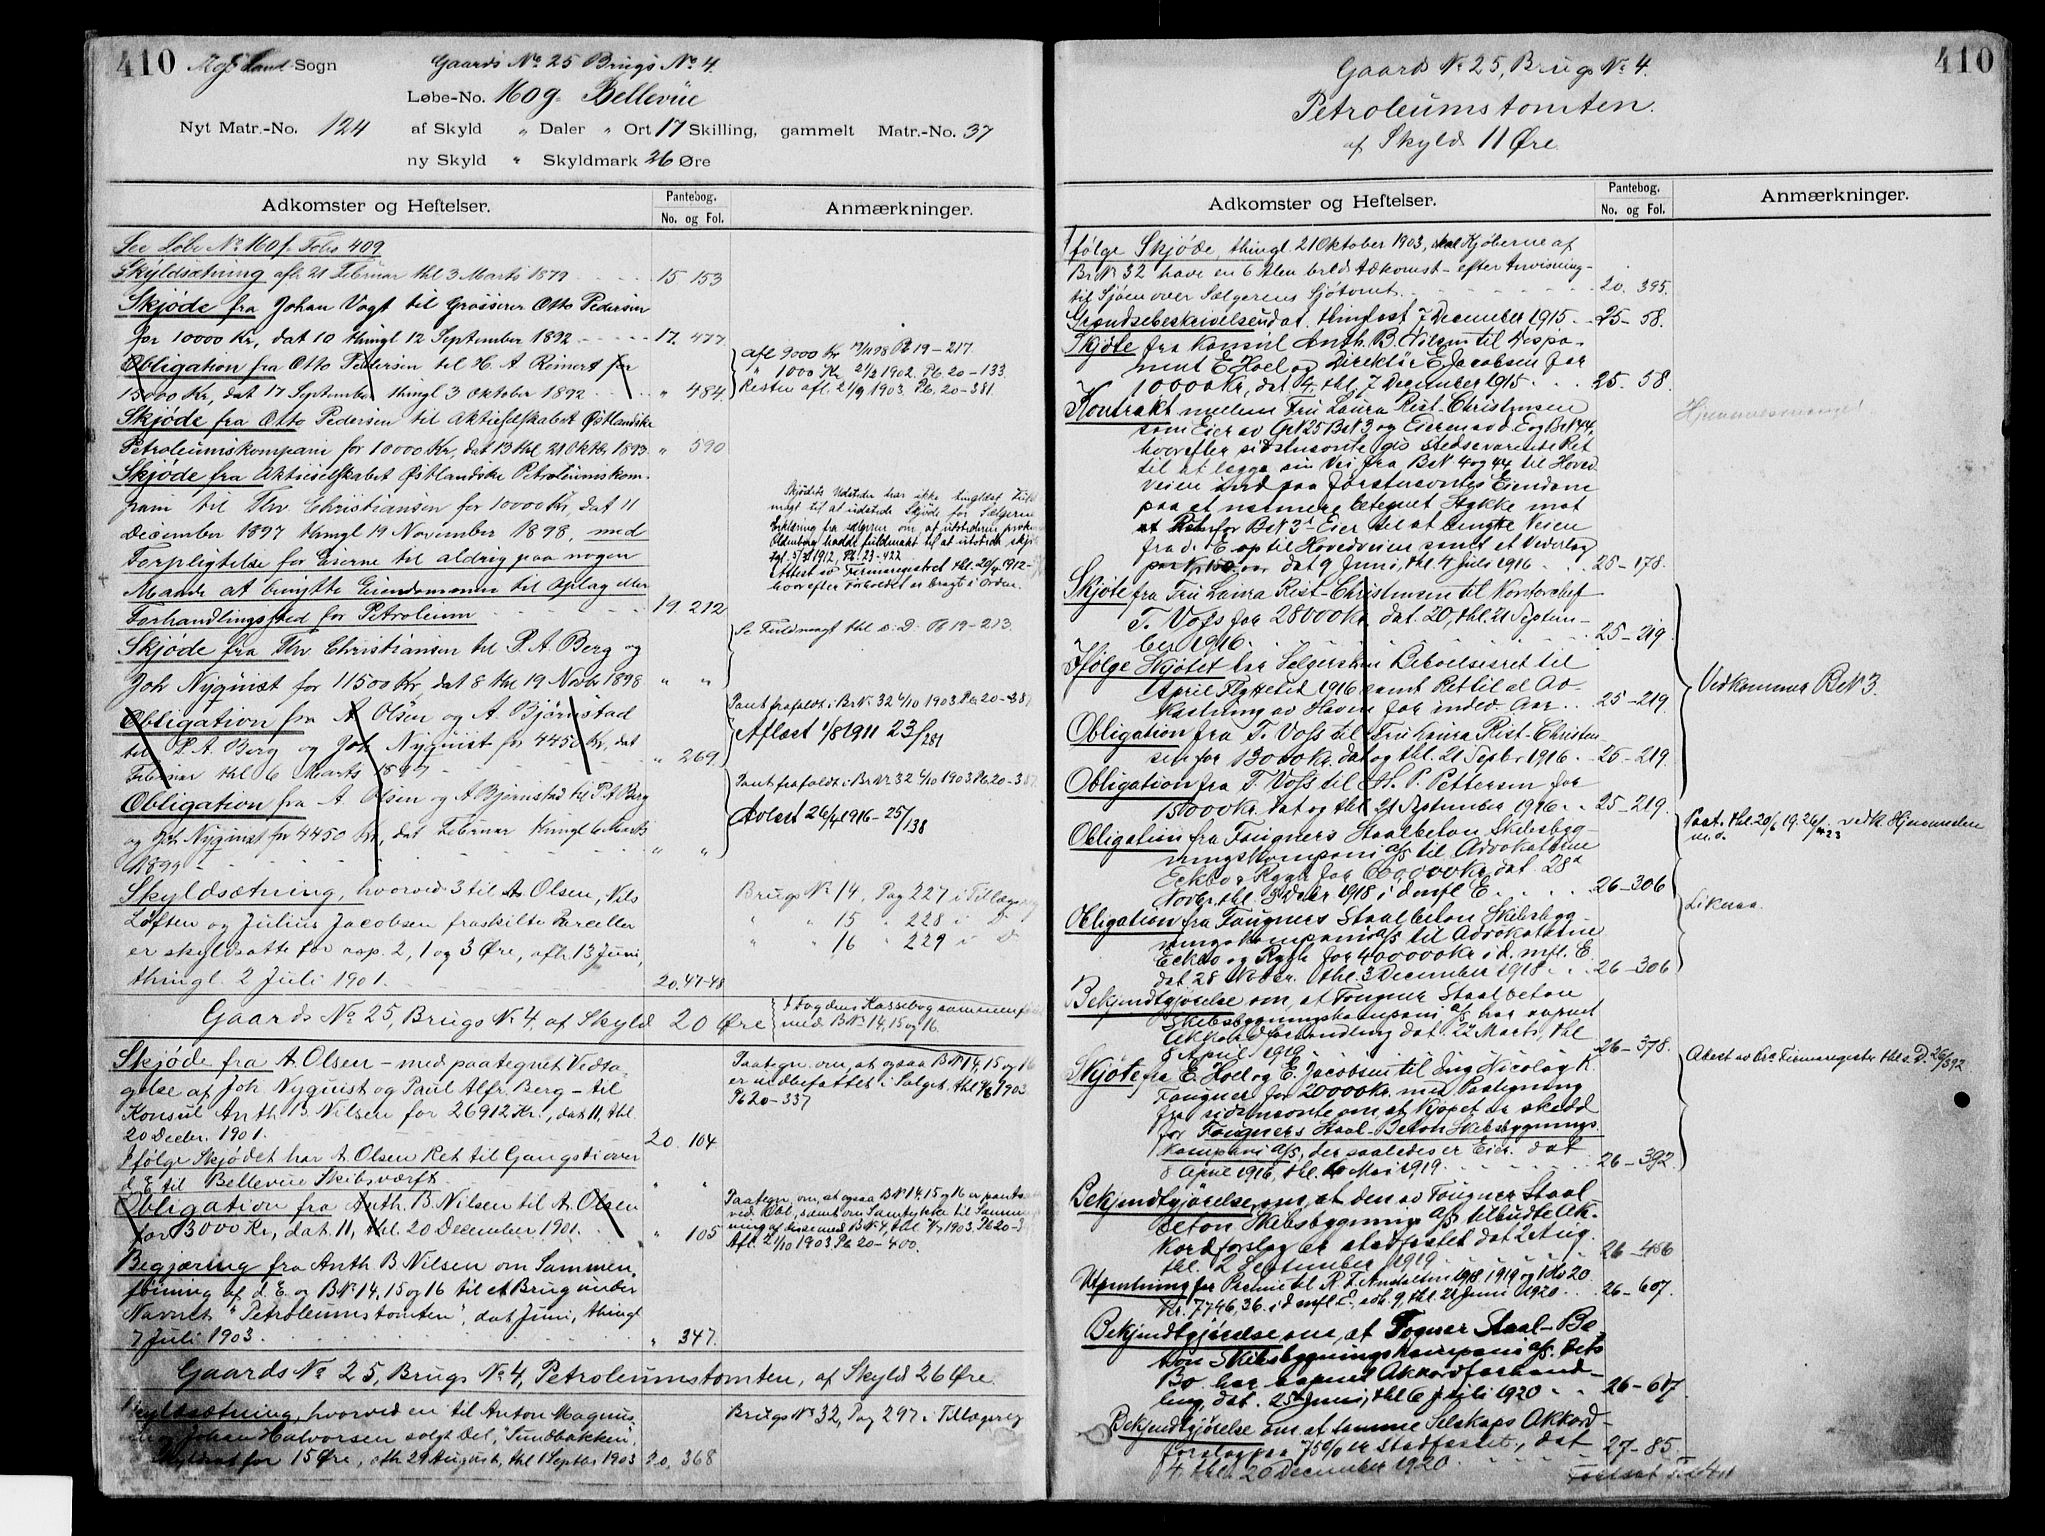 410 Moss Land Sogn
Gaards No 25 Brugs No 4.
Løbe-No. 160g Bellevue
Nyt Matr.-No. 124 af Skyld " Daler " Ort 17 Skilling, gammelt Matr.-No. 37
ny Skyld " Skyldmark 26 Øre
Adkomster og Heftelser. Pantebog. No. og Fol. Anmærkninger.
See Løbe No 160f Folio 409
Skyldsætning afh. 21 Februar thl 3 Marts 1879 15 153
Skjøde fra Johan Vogt til Grosserer Otto Pedersen
for 10000 Kr, dat 10 thingl 12 September 1892 17. 477
Obligation fra Otto Pedersen til H. A. Reinert for
15000 Kr, dat 17 September thingl 3 Oktober 1892 " 484
Afl 9000 Kr 19/11 98 Pb 19-217
" 1000 Kr 21/2 1902. Pb. 20-133.
Resten afl. 21/9 1903. Pb. 20-381.
Skjøde fra Otto Pedersen til Aktieselskabet Østlandske
Petroleumskompani for 10000 Kr, dat 13 thl 21 Oktbr 1893 " 590
Skjøde fra Aktieselskabet Østlandske Petroleumskom-
pani til Thv Christiansen for 10000 Kr, dat 11
December 1897 thingl 19 November 1898, med
Forpligtelse for Eierne til aldrig paa nogen
Maade at benytte Eiendommen til Oplag eller
Forhandlingssted for Petroleum 19. 212
Skjødets Udsteder har ikke tingldst Fuld-
magt til at udstede Skjøde for Sælgerne
Erklæring fra sælgerne om at utstederen
Oldenborg hadde fuldmakt til at utstede skjø
Pb. 23-422
Attest av Firmaregistret thl. 1912-
hvorefter forholdet er bragt i Orden.
Skjøde fra Thv Christiansen til P. A. Berg og
Joh Nyquist for 11500 Kr, dat 8 thl 19 Novbr 1898 " "
Se Fuldmagt thl s. D. Pb 19-213
Obligation fra A Olsen og A. Bjørnstad
til P. A. Berg og Joh Nyquist for 4450 Kr, dat
Februar thl 6 Marts 1899 " 269
Pant frafaldt i BrNo 32 6/10 1903 Pb. 20-387
Aflest 1/8 1911 23/281
Obligation fra A. Olsen og A Bjørnstad til P A Berg
og Joh Nyquist for 4450 Kr, dat Februar thingl 6 Marts
1899 " "
Pant frafaldt i BrNo 32 6/10 1903 Pb. 20-387
Avlest 26/4 1916-25/138
Skyldsætning, hvorved 3 til A. Olsen, Nils
Løften og Julius Jacobsen fraskilte Parceller
er skyldsatte for resp. 2, 1 og 3 Øre, afh. 13 Juni,
thingl. 2 Juli 1901. 20. 47-48
Brugs No 14, Pag 227 i Tillægsreg
" " 15 " 228 i D
" " 16 " 229 i D
Gaards No 25, Brugs No 4, af Skyld 20 Øre
I Fogdens Kassebog sammenføiet
med BNo 14, 15 og 16.
Skjøde fra A. Olsen - med paategnet Vedta-
gelse af Joh Nyquist og Paul Alfr. Berg - til
Konsul Anth B. Nilsen for 26912 Kr., dat 11, thl.
20 Decbr. 1901. 20 104
Paategn. om, at ogsaa BNo 14, 15 og 16
er indbefattet i Salget, thl 1903
Pb 20-337
Ifølge Skjødet har A. Olsen Ret til Gangsti over
d. E til Bellevue Skibsværft. " "
Obligation fra Anth. B. Nilsen til A. Olsen
for 13000 Kr, dat. 11, thl. 20 December 1901. " 105
Paategn. om, at ogsaa BNo 14, 15 og 16 er pantsat
ved Obl, samt om Samtykke til Sammenføi-
ning af disse med BNo 4, thl 1903. Pb 20-
Afl. 21/10 1903 Pb 20-400.
Begjæring fra Anth B Nilsen om Sammen-
føining af d. E. og BNo 14, 15 og 16 til et Brug under
Navnet "Petroleumstomten", dat Juni, thingl
7 Juli 1903. " 347.
Gaards No 25, Brugs No 4, Petroleumstomten, af Skyld 26 Øre.
Skyldsætning, hvorved en til Anton Magnus
Johan Halvorsen solgt Del, "Sundbakken",
skyldsat for 15 Øre, afh 29 August, thl 1 Septbr 1903 20, 368
Brugs No 32, Pag 297 i Tillægsreg
410
Gaards No 25, Brugs No 4.
Petroleumstomten.
af Skyld 11 Øre.
Adkomster og Heftelser. Pantebog. No. og Fol. Anmærkninger.
Ifølge Skjøde, thingl. 21 Oktober 1903, skal Kjøberne af
BrNo 32 have en 6 Alen bred Adkomst - efter Anvisning -
til Sjøen over Sælgerens Sjøtomt. 20. 395.
Grændsebeskrivelse udat. thinglyst 7 December 1915. 25-58.
Skjøte fra Konsul Anth. B. Nilsen til Despo-
nent E. Hoel og Direktør E Jacobsen for
10000 Kr, dat 4. thl. 7 December 1915 25. 58.
Kontrakt mellem Fru Laura Rist-Christensen
som Eier av GNo 25 BNo 3 og Eieren av d. E og BrNo 44,
hvorefter sidstnævnte gis stedsevarende Ret
til at lægge sin Vei fra BNo 4 og 44 til Hoved
Veien ind paa førstnævntes Eiendom
paa et nærmere betegnet Stykke mot
Ret for BNo 3's Eier til at benytte Veien
fra d. E. op til Hovedveien samt et Vederlag
paa Kr 150.00 dat 9 Juni, thl. 4 Juli 1916 25-178.
Hjemmelsmangel
Skjøte fra Fru Laura Rist-Christensen til Korforchef
T. Voss for 28000 Kr. dat. 20, thl. 21 Septem-
ber 1916. 25-219.
Ifølge Skjøtet har Sælgersken Beboelsesret til
April Flyttetid 1916 samt Ret til al Av-
kastning av Haven for indev. Aar 25-219.
Vedkommer BNo 3.
Obligation fra T. Voss til Fru Laura Rist-Christen-
sen for 13000 Kr. dat og thl. 21 Septbr 1916. 25-219.
Obligation fra T. Voss til H. P. Pettersen for
15000 Kr. dat og thl. 21 September 1916 25-219.
Obligation fra Fougners Staalbeton Skibsbyg-
ningskompani A/S til Advokaterne
Eckbo & Rygh for 600,000 Kr, dat. 28de
Novbr. thl. 3 Decbr 1918 i d mfl E 26-306
Paat. thl. 20/6 19. 26/423 vedk. Hjemmelen
m. v.
Obligation fra Fougners Staalbeton Skibsbyg-
ningskompani A/S til Advokaterne
Eckbo og Rygh for 400000 Kr i d. mfl. E.
dat. 28 Novbr. thl. 3 December 1918 26-306
Likesaa.
Bekjendtgjørelse om, at Fougner Staalbeton
Skibsbygningskompani A/S har aapnet
Akkordforhandling dat. 22 Marts, thl
8 April 1919 26-378.
Skjøte fra E. Hoel og E. Jacobsen til Ing Nicolay K.
Fougner for 20000 Kr. med Paategning
fra sidstnævnte om, at Kjøpet er skedd
for Fougners Staal-Beton Skibsbygnings
Kompani A/S, der saaledes er Eier. dat
8 April 1916, thl. Mai 1919. 26-392.
Attest av Firmaregister thl s. D. 26/392
Bekjendtgjørelse om, at den av Fougner Staal-
beton Skibsbygnings A/S tilbudte Ak-
kordforslag er stadfæstet dat 2 Aug.
thl. 2 September 1919 26-456
Utpantning for Præmie til R. F. Anstalten 1918, 1919 og 1920
Kr. 7746,36. i d mfl E, adh. 9, thl. 21 Juni 1920. 26-607.
Bekjendtgjørelse om, at Fogner Staal-Be-
ton Skibsbygningskompani A/S. dets
Bo har aapnet Akkordforhand-
ling, dat. 25 Juni, thl 6 Juli 1920 26-617.
Bekjendtgjørelse om at samme Selskaps Akkord-
forslag paa 75% er stadfæstet, dat
4. thl. 20 December 1920. 27-85.